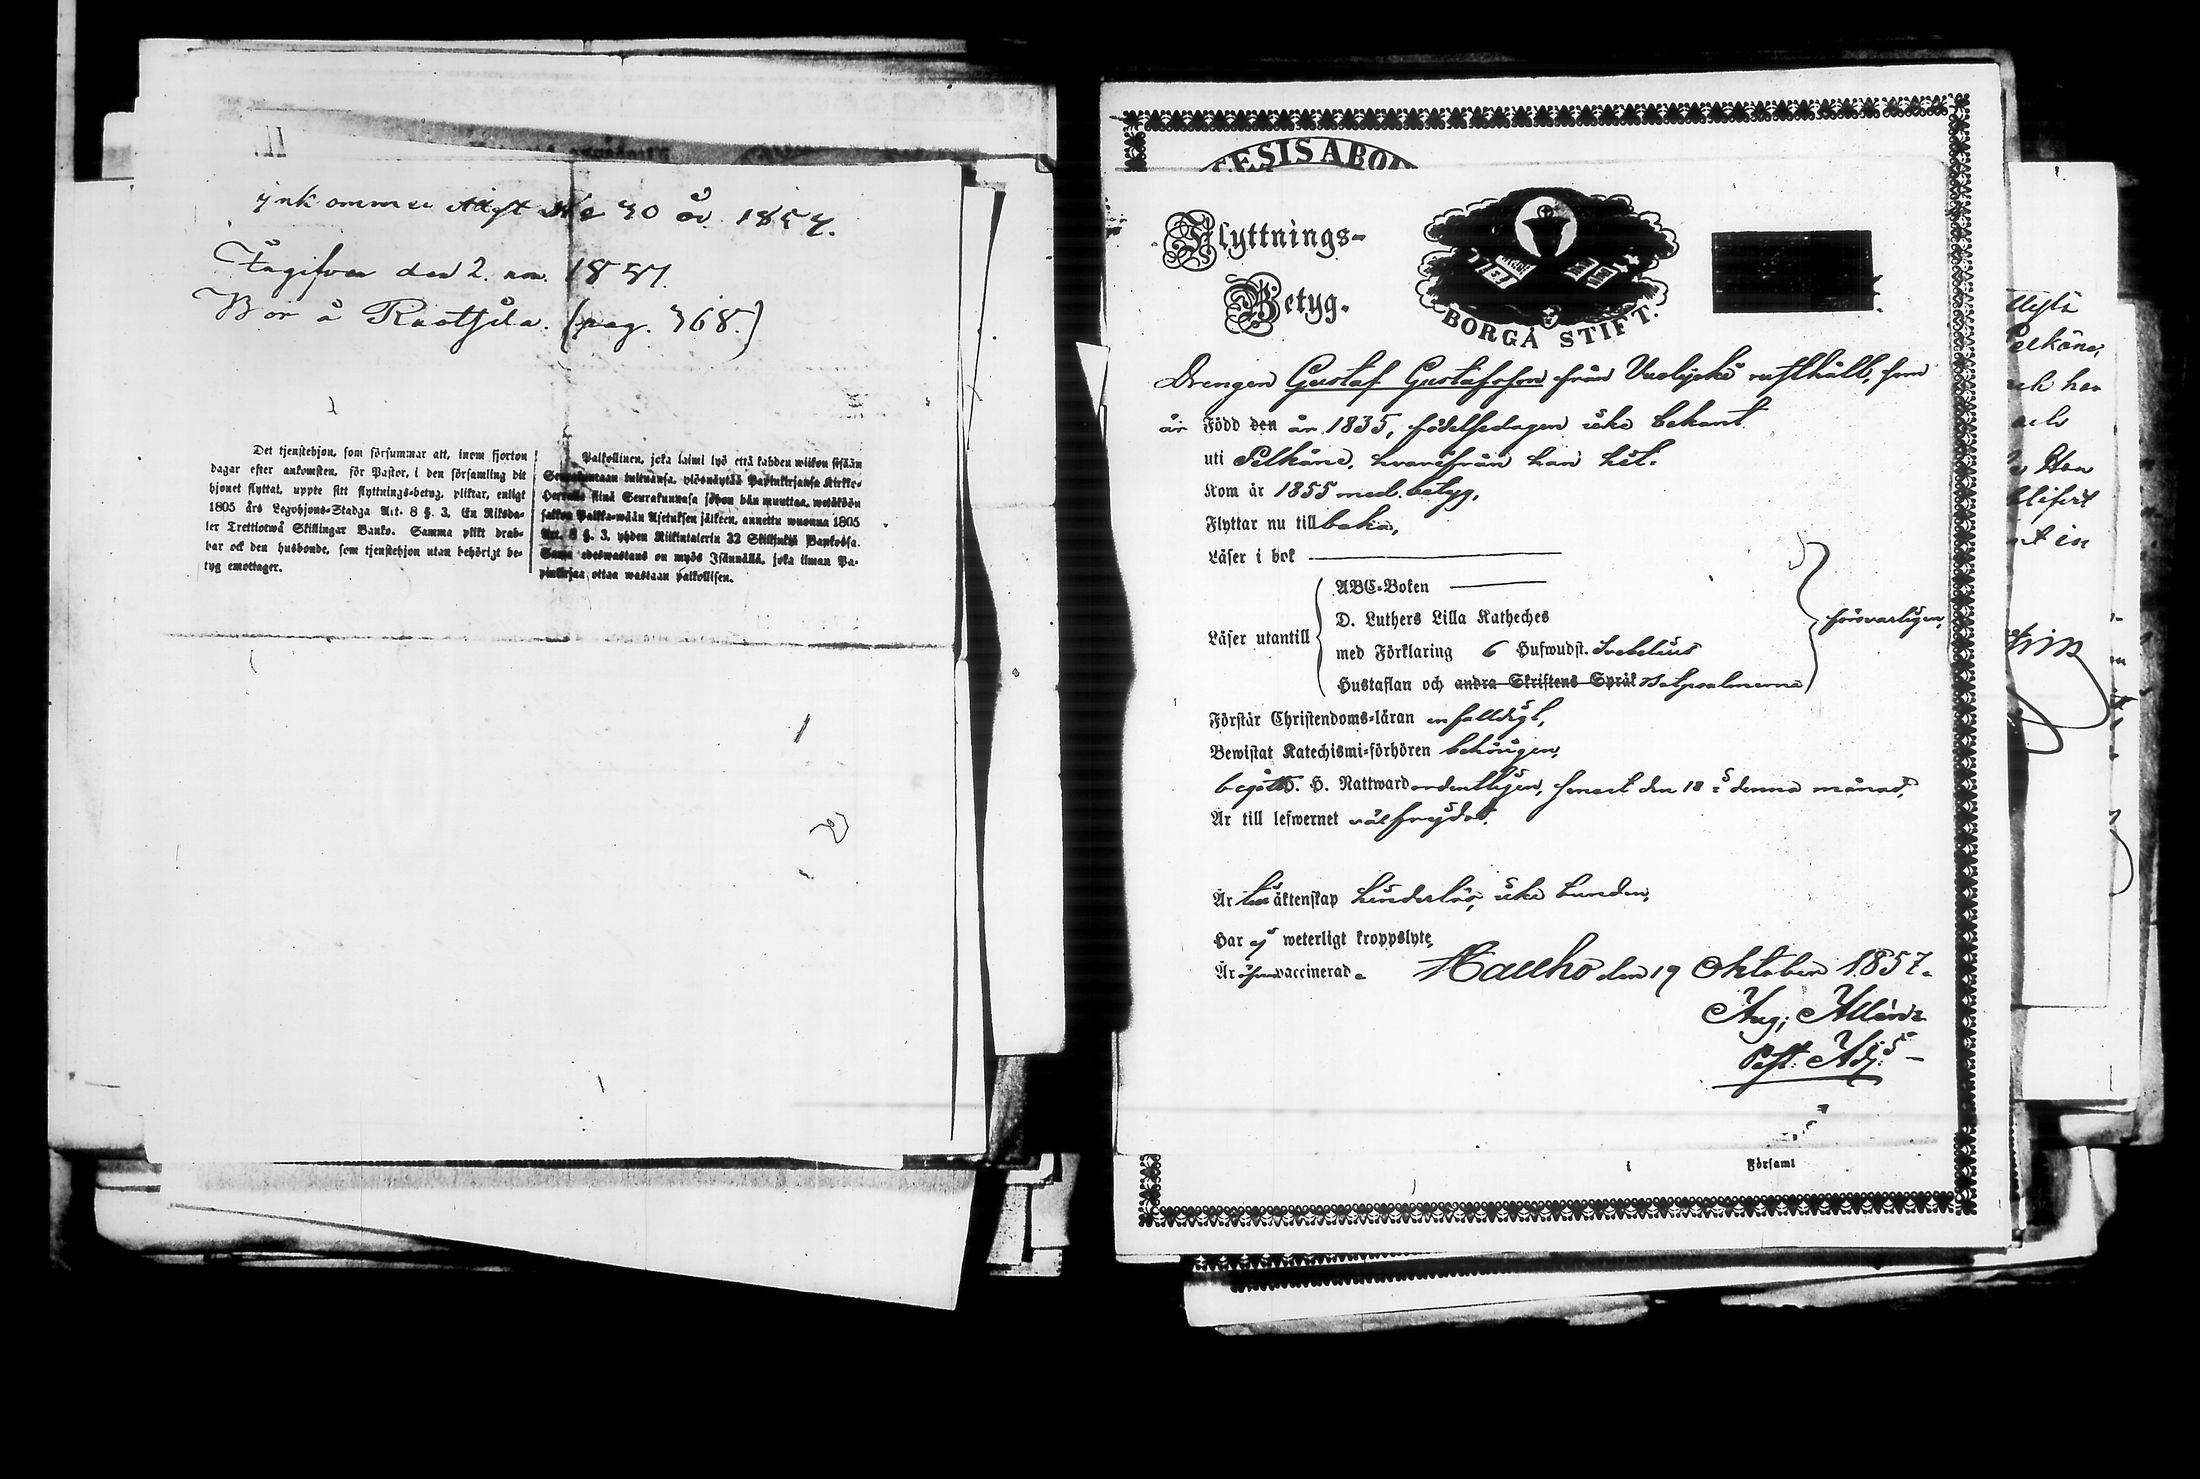 inkommen Attest No 30 år 1857.
Ingifven den 2. nov. 1857.
Bor å Raotjila. (pag. 368.)
Det tjenstehjon, som försummar att, inom fjorton
dagar efter ankomsten, för Pastor, i den församling dit
hjonet flyttat, uppte sitt flyttnings-betyg, pliktar, enligt
1805 års Legohjons-Stadga Art. 8 §. 3. En Riksda-
ler Trettiotwå Skillingar Banko. Samma plikt drab-
bar ock den husbonde, som tjenstehjon utan behörigt be-
tyg emottager.
Palkollinen, joka laimi lyö että kahden wiikon sisään
Seurakuntaan tultuansa, ylösnäyttää Papinkirjansa Kirkko-
Herralle siinä Seurakunnasa johon hän muuttaa, wetäköön
sakkoa Palkka-wään Asetuksen jälkeen, annettu wuonna 1805
Art. 8 §. 3. yhden Riikintalerin 32 Skillinkiä Bankossa.
Sama edeswastaus on myös Isännällä, joka ilman Pa-
pinkirjaa ottaa wastaan palkollisen.
ESIS ABO
Flyttnings-
Betyg.
BORGÅ STIFT.
Drengen Gustaf Gustafsson från rusthåll, som
är Född den år 1835, födelsedagen icke bekant
uti Pelkäne, hvarifrån han hit.
Kom år 1855 med betyg,
Flyttar nu till baka,
Läser i bok
ABC-Boken
D. Luthers Lilla Katheches
Läser utantill
försvarligen,
med Förklaring 6 Hufwudst. Svebelius
Hustaflan och andra Skriftens Språk Botpsalmerna
Förstår Christendoms-läran enfalldigt,
Bewistat Katechismi-förhören behörigen,
begått H. H. Nattward ordentligen, senast den 18 i denna månad,
Är till lefwernet välfrejdad.
Är till äktenskap hinderlös, icke bunden,
Har ej weterligt kroppslyte,
Är vaccinerad.
Hauho den 19 Oktober 1857.
Aug. Allén
Past. Adj.
i Församl